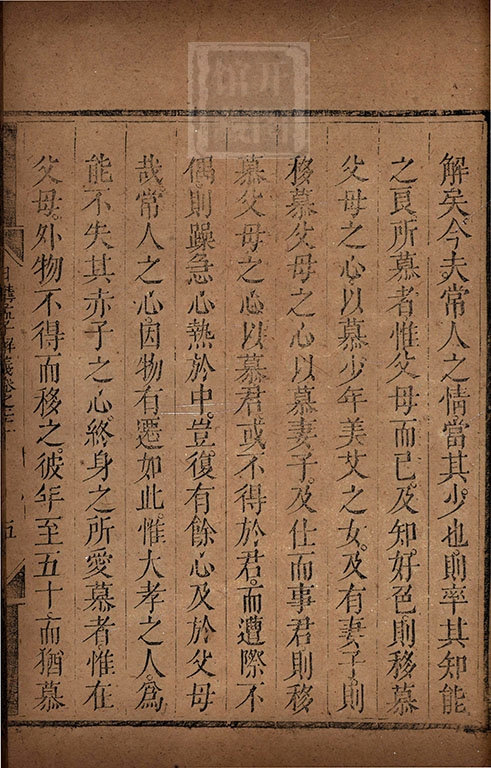 解矣。今夫常人之情當其少也。則率其知能
之良所慕者惟父母而已。及知好色則移慕
父母之心以慕少年美艾之女。及有妻子則
移慕父母之心以慕妻子。及仕而事君則移
慕父母之心以慕君或不得於君。而遭際不
偶。則躁急心熱於中。豈復有餘心及於父母
哉。常人之心因物有遷如此。惟大孝之人。爲
能不失其赤子之心。終身之所愛慕者惟在
父母。外物不得而移之。彼年至五十而猶慕
日講
解義卷之二
五